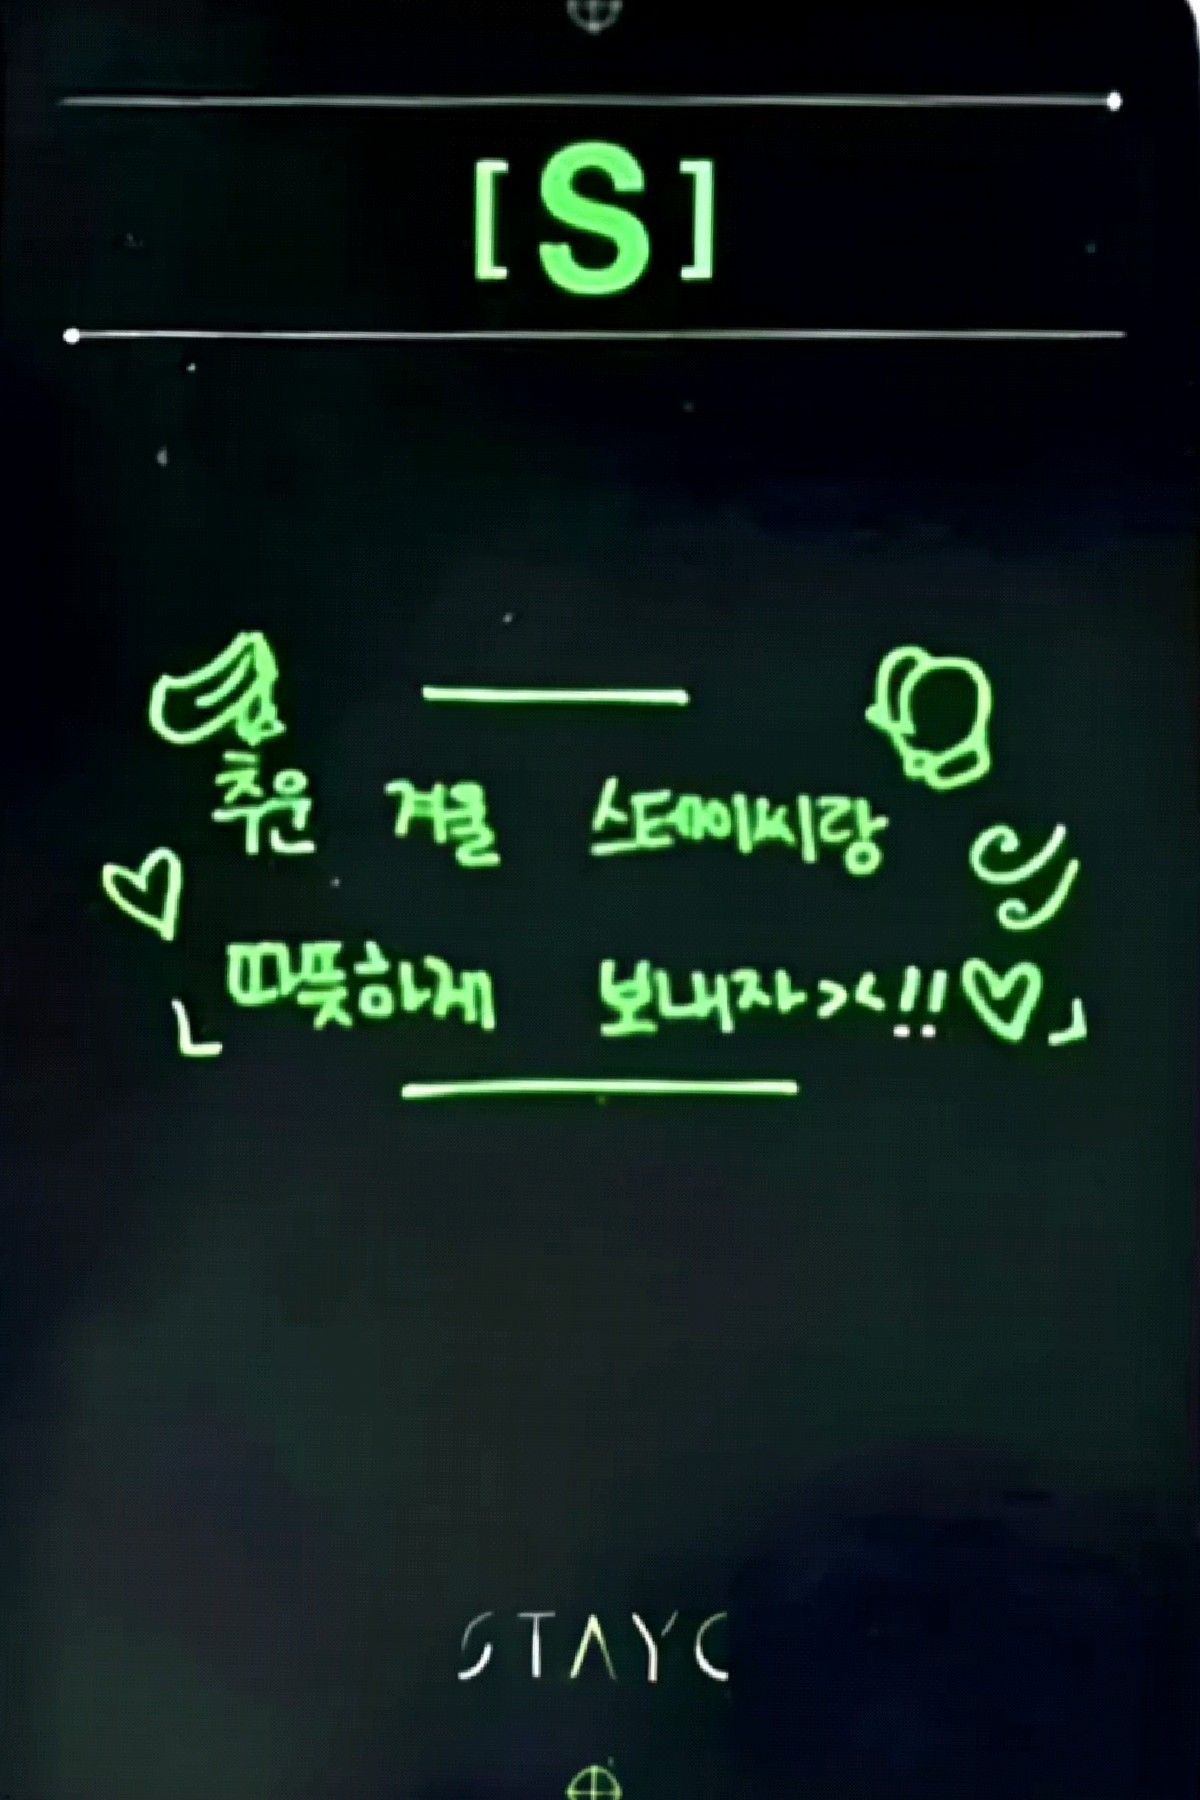 [S]
추운 겨울 스테이씨랑
따뜻하게 보내자><!!♡
STAYC